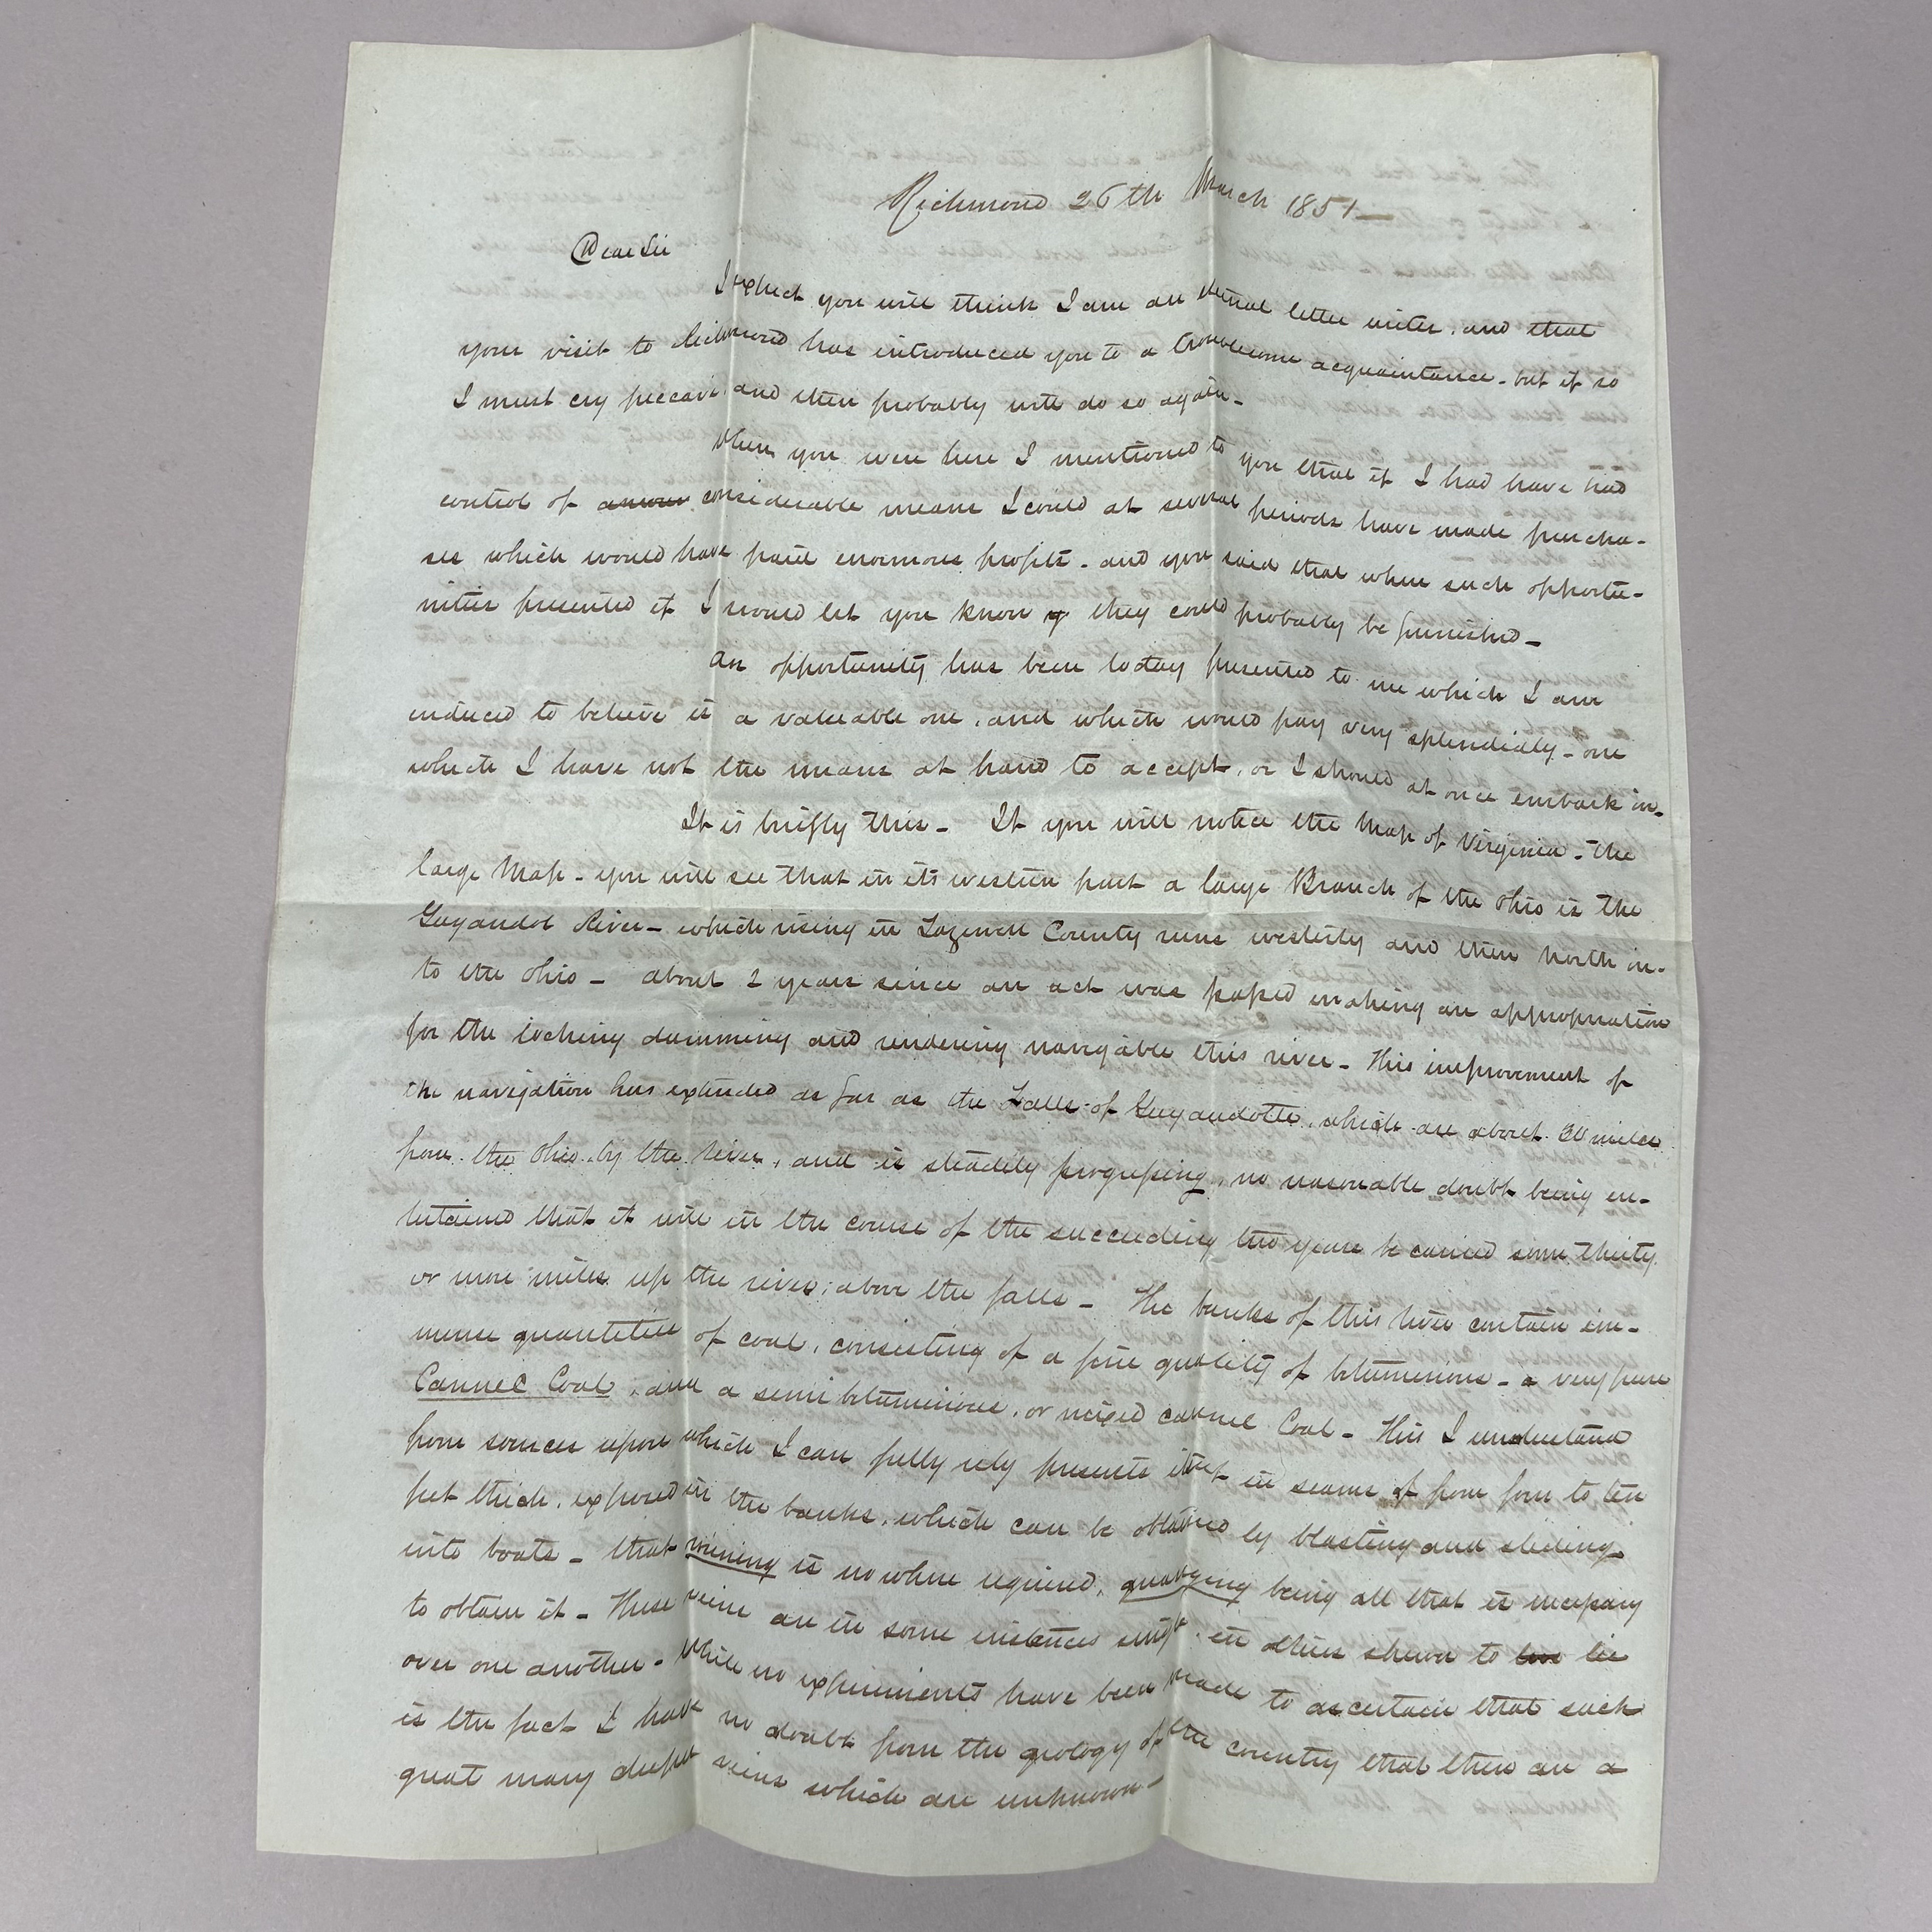 Richmond 26th March 1851
Dear Sir
I expect you will think I am an eternal letter writer, and that
your visit to Richmond has introduced you to a troublesome acquaintance - but if so
I must cry peccavi and then probably will do so again -
When you were here I mentioned to you that if I had have had
control of considerable means I could at several periods have made purcha-
ses which would have paid enormous profits - and you said that when such opportu-
nities presented if I would let you know they could probably be furnished -
An opportunity has been today presented to me which I am
induced to believe is a valuable one, and which would pay very splendidly - one
which I have not the means at hand to accept, or I should at once embark in -
It is briefly this - If you will notice the Map of Virginia - the
large Map - you will see that in its western part a large Branch of the Ohio is the
Guyandot River - which rising in Tazewell County runs westerly and then north in-
to the Ohio - about 2 years since an act was passed making an appropriation
for the locking damming and rendering navigable this river - This improvement of
the navigation has extended as far as the Falls of Guyandotte, which are about miles
from the Ohio by the river, and is steadily progressing, no reasonable doubt being en-
tertained that it will in the course of the succeeding two years be carried some thirty
or more miles up the river, above the falls - The banks of this river contain im-
mense quantities of coal, consisting of a fine quality of bituminous - a very pure
Cannel Coal, and a semi bituminous, or mixed cannel Coal - This I understand
from sources upon which I can fully rely presents itself in seams of from four to ten
feet thick, exposed in the banks, which can be obtained by blasting and sliding
into boats - that mining is no where required, quarrying being all that is necessary
to obtain it - These veins are in some instances single in others shewn to lie
over one another - While no experiments have been made to ascertain that such
is the fact I have no doubt from the geology of the country that there are a
great many deeper veins which are unknown -